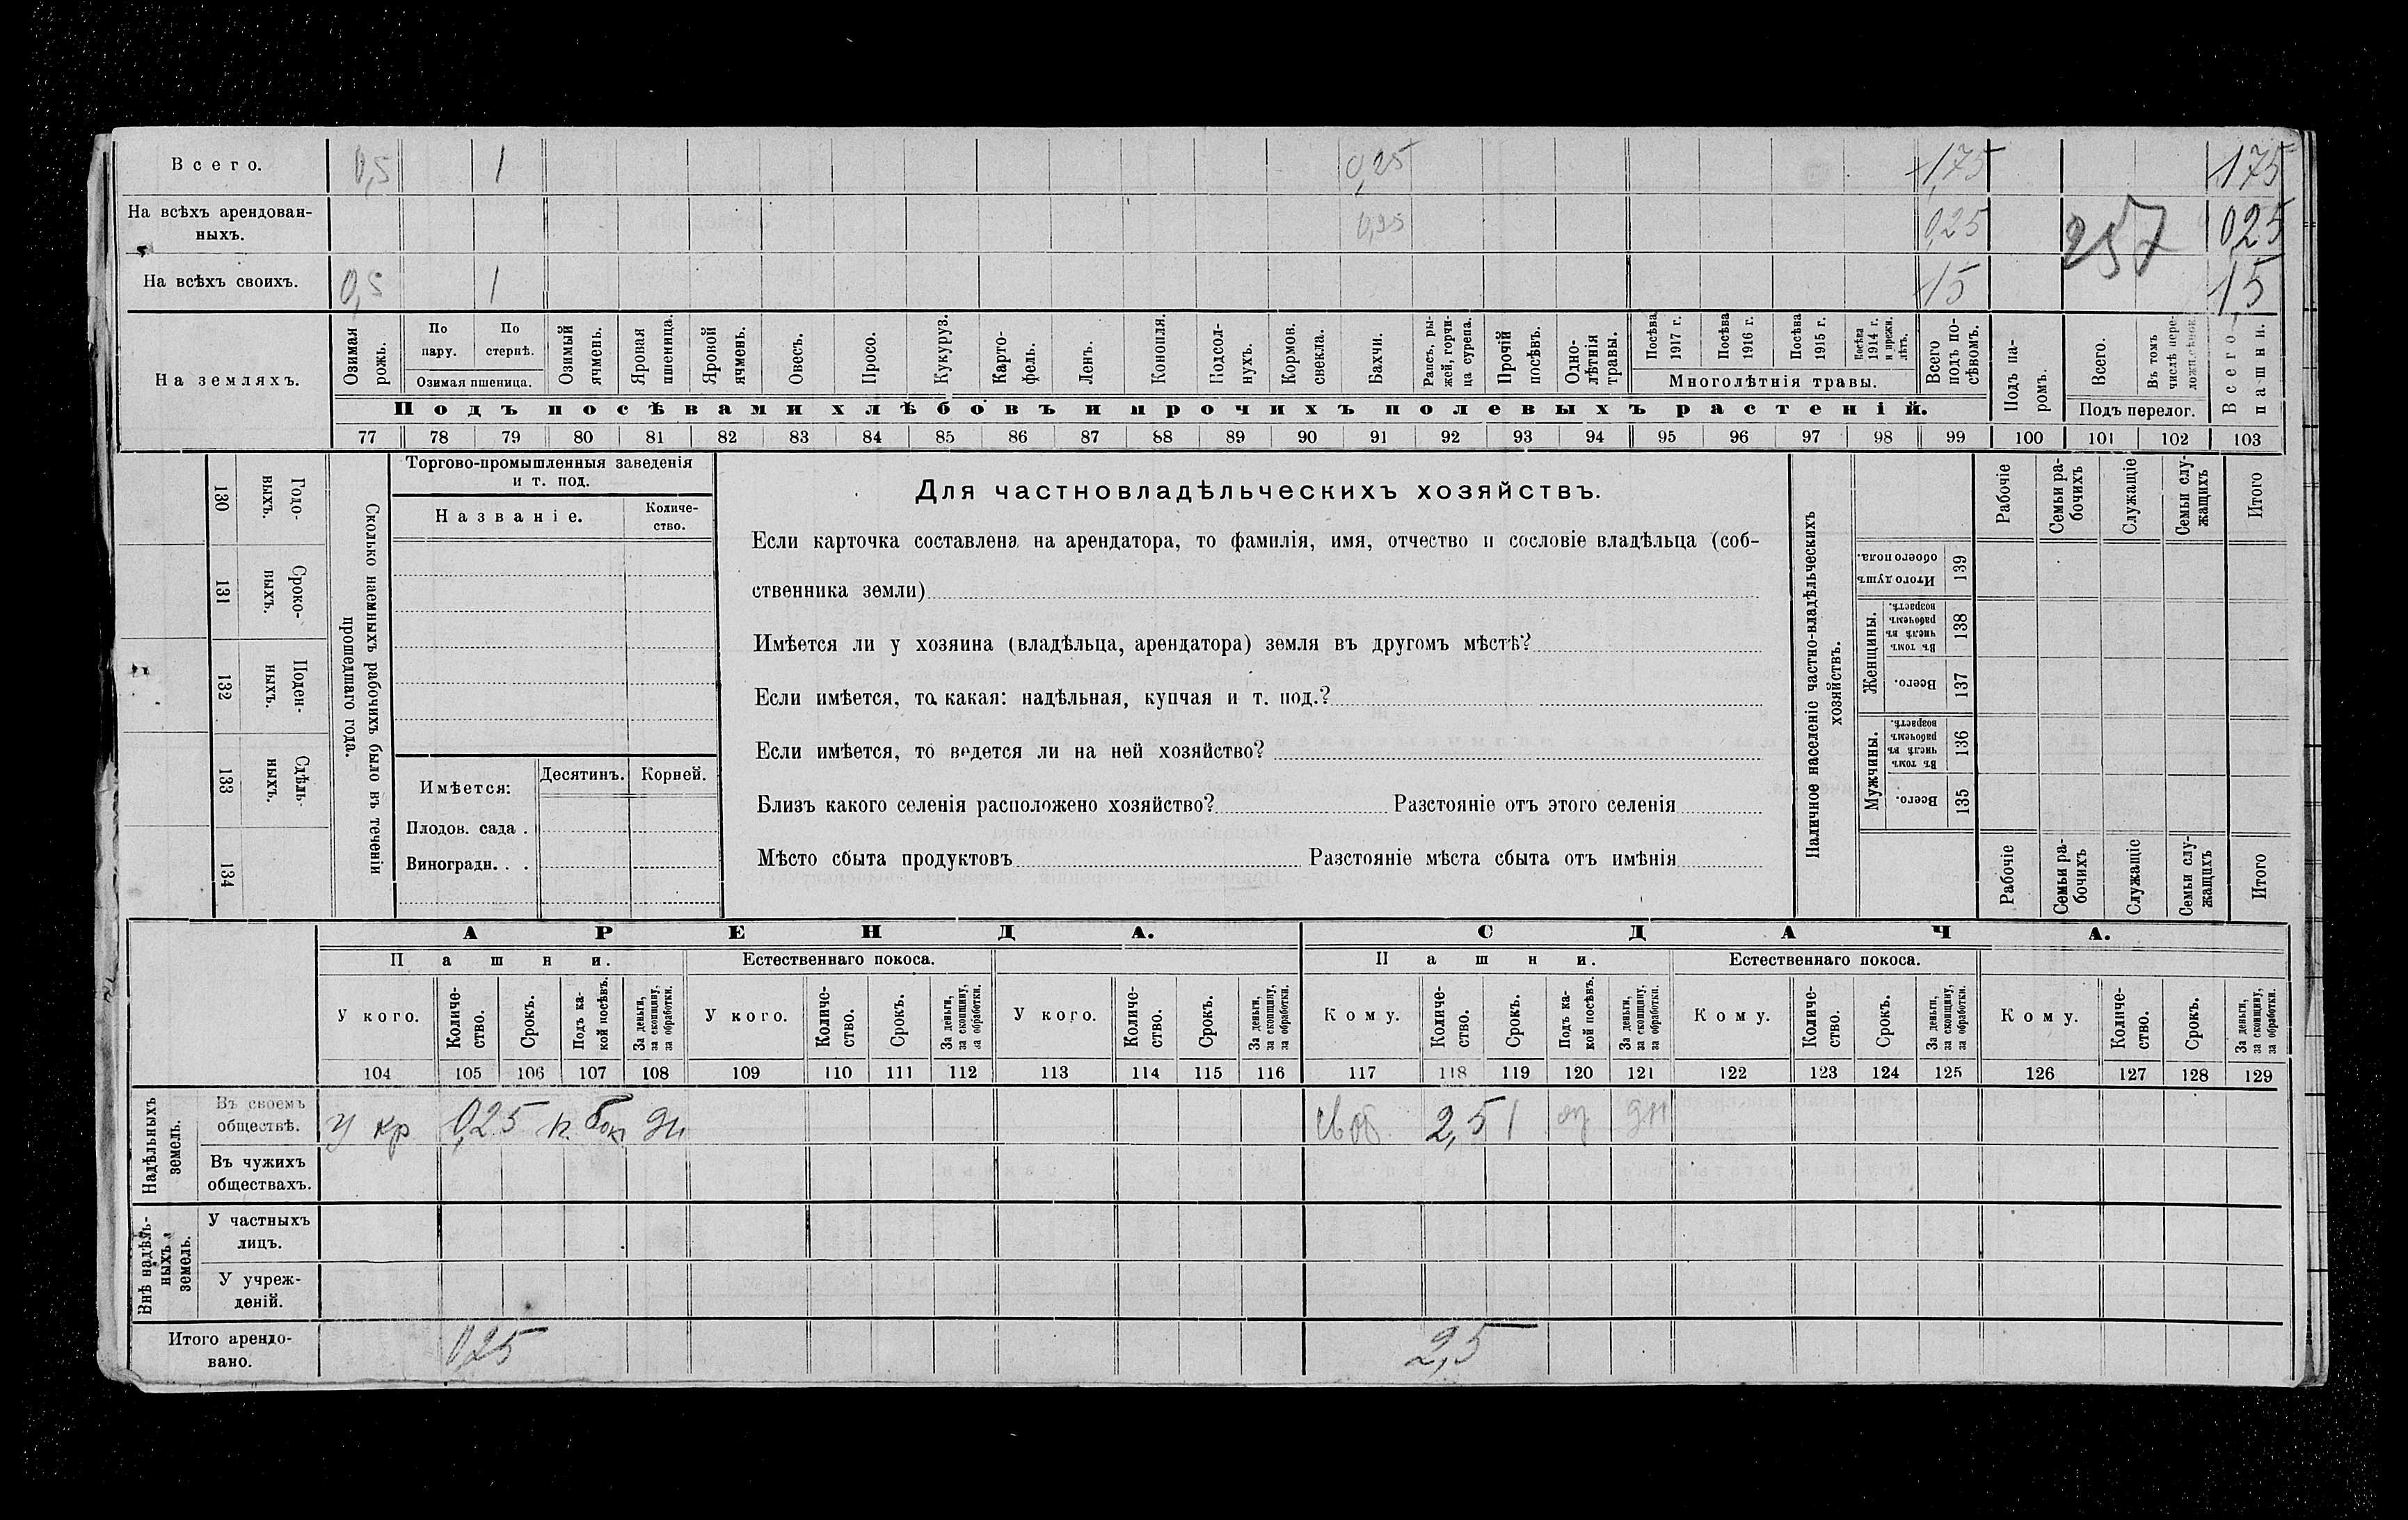 Всего. 0,5 1 0,25 1,75 175
На всѣхъ арендован-
ныхъ. 0,25 0,25 257 0,25
На всѣхъ своихъ. 0,5 1 15 1,5
На земляхъ.
Озимая рожь.
По пару.
По стернѣ.
Озимая пшеница.
Озимый ячмень.
Яровая пшеница.
Яровой ячмень.
Овесъ.
Просо.
Кукуруз.
Карто-
фель.
Ленъ.
Конопля.
Подсол-
нухъ.
Кормов. свекла.
Бахчи.
Рапсъ, ры-
жей, горчи-
ца сурепа.
Прочій посѣвъ.
Одно-
лѣтнія травы.
Посѣва 1917 г.
Посѣва 1916 г.
Посѣва 1915 г.
Посѣва 1914 г. и прежн. лѣтъ.
Многолѣтнія травы.
Всего подъ по-
сѣвомъ.
Подъ па-
ромъ.
Всего.
Въ томъ числѣ пере-
Подъ перелог.
Всего пашни.
Подъ посѣвами хлѣбовъ и прочихъ полевыхъ растеній.
77 78 79 80 81 82 83 84 85 86 87 88 89 90 91 92 93 94 95 96 97 98 99 100 101 102 103
130 Годо-
выхъ.
131 Сроко-
ныхъ.
132 Поден-
ныхъ.
133 Сдѣль-
ныхъ.
134
Сколько наемныхъ рабочихъ было въ теченіи
прошедшаго года.
Торгово-промышленныя заведенія
и т. под.
Названіе.
Количе-
ство.
Имѣется:
Десятинъ. Корней.
Плодов. сада .
Виноградн. . .
Для частновладѣльческихъ хозяйствъ.
Если карточка составлена на арендатора, то фамилія, имя, отчество и сословіе владѣльца (соб-
ственника земли)
Имѣется ли у хозяина (владѣльца, арендатора) земля въ другомъ мѣстѣ?
Если имѣется, то какая: надѣльная, купчая и т. под.?
Если имѣется, то ведется ли на ней хозяйство?
Близъ какого селенія расположено хозяйство? Разстояніе отъ этого селенія
Мѣсто сбыта продуктовъ Разстояніе мѣста сбыта отъ имѣнія
Наличное населеніе частно-владѣльческихъ
хозяйствъ.
Рабочіе
Семьи ра-
бочихъ
Служащіе
Семьи слу-
жащихъ
Итого
Итого душъ обоего пола. 139
Женщины.
Въ томъ числѣ въ рабочемъ возрастѣ. 138
Всего. 137
Мужчины.
Въ томъ числѣ въ рабочемъ возрастѣ. 136
Всего. 135
Рабочіе
Семьи ра-
бочихъ
Служащіе
Семьи слу-
жащихъ
Итого
АРЕНДА. СДАЧА.
Пашни. Естественнаго покоса. Пашни. Естественнаго покоса.
У кого.
Количе-
ство.
Срокъ.
Подъ ка-
кой посѣвъ.
За деньги, за скопщину, за обработки.
У кого.
Количе-
ство.
Срокъ.
За деньги, за скопщину, за обработки.
У кого.
Количе-
ство.
Срокъ.
За деньги, за скопщину, за обработки.
Кому.
Количе-
ство.
Срокъ.
Подъ ка-
кой посѣвъ.
За деньги, за скопщину, за обработки.
Кому.
Количе-
ство.
Срокъ.
За деньги, за скопщину, за обработки.
Кому.
Количе-
ство.
Срокъ.
За деньги, за скопщину, за обработки.
104 105 106 107 108 109 110 111 112 113 114 115 116 117 118 119 120 121 122 123 124 125 126 127 128 129
Надѣльныхъ
земель.
Въ своемъ
обществѣ. У кр 0,25 2,5 1
Въ чужихъ
обществахъ.
Внѣ надѣль-
ныхъ
земель.
У частныхъ
лицъ.
У учреж-
деній.
Итого арендо-
вано. 0,25 2,5